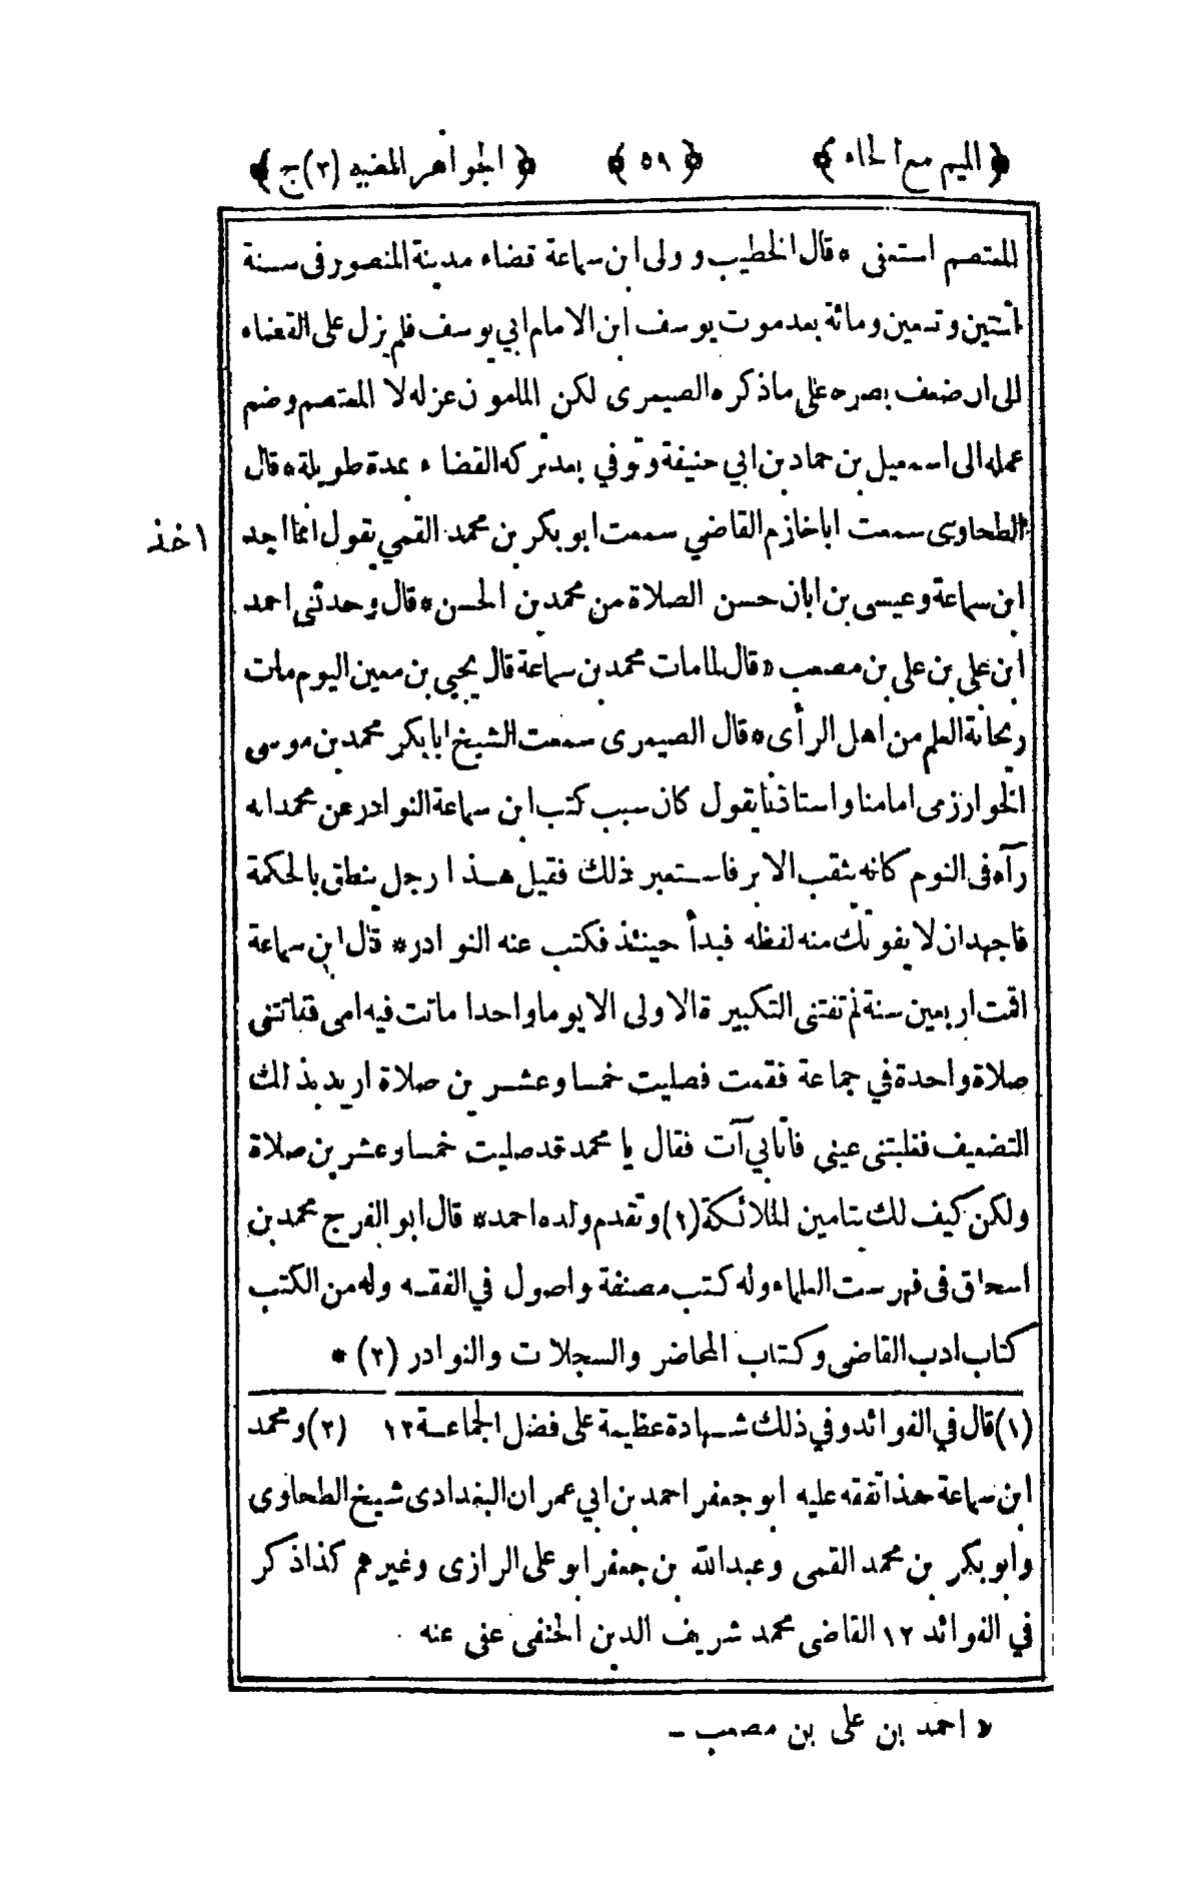 ﴿الميم مع الحاء﴾ ﴿٥٩﴾ ﴿الجواهر المضيه (٢) ج﴾
المعتصم استعفى * قال الخطيب وولى ابن سماعة قضاء مدينة المنصور فى سنة
اثنتين وتسعين ومائة بعد موت يوسف ابن الامام ابي يوسف فلم يزل على القضاء
الى ان ضعف بصره على ما ذكره الصيمرى لكن المامون عزله لا المعتصم وضم
عمله الى اسمعيل بن حماد بن ابي حنيفة وتوفي بعد تركه القضاء بمدة طويلة * قال
الطحاوى سمعت ابا خازم القاضي سمعت ابو بكر بن محمد القمي يقول انما اجد
اخذ
ابن سماعة وعيسى بن ابان حسن الصلاة من محمد بن الحسن * قال وحدثنى احمد
ابن على بن على بن مصعب « قال لما مات محمد بن سماعة قال يحيى بن معين اليوم مات
ريحانة العلم من اهل الرأى * قال الصيمرى سمعت الشيخ ابا بكر محمد بن موسى
الخوارزمى امامنا واستاذنا يقول كان سبب كتب ابن سماعة النوادر عن محمد انه
رآه فى النوم كانه يثقب الابر فاستعبر ذلك فقيل هذا رجل ينطق بالحكمة
فاجهد ان لا يفوتك منه لفظه فبدأ حينئذ فكتب عنه النوادر * قال ابن سماعة
اقمت اربعين سنة لم تفتنى التكبيرة الاولى الا يوما واحدا ماتت فيه امى ففاتتنى
صلاة واحدة في جماعة فقمت فصليت خمسا وعشرين صلاة اريد بذلك
التضعيف فغلبتنى عينى فاتانى آت فقال يا محمد قد صليت خمسا وعشرين صلاة
ولكن كيف لك بتامين الملائكة (١) وتقدم ولده احمد * قال ابو الفرج محمد بن
اسحاق فى فهرست العلماء وله كتب مصنفة واصول في الفقه وله من الكتب
كتاب ادب القاضى وكتاب المحاضر والسجلات والنوادر (٢) *
(١) قال في الفوائد وفي ذلك شهادة عظيمة على فضل الجماعة ١٢ (٢) ومحمد
ابن سماعة هذا تفقه عليه ابو جعفر احمد بن ابي عمران البغدادى شيخ الطحاوى
وابو بكر بن محمد القمى وعبد الله بن جعفر ابو على الرازى وغيرهم كذا ذكر
في الفوائد ١٢ القاضى محمد شريف الدين الحنفى عفى عنه
« احمد بن على بن مصعب -